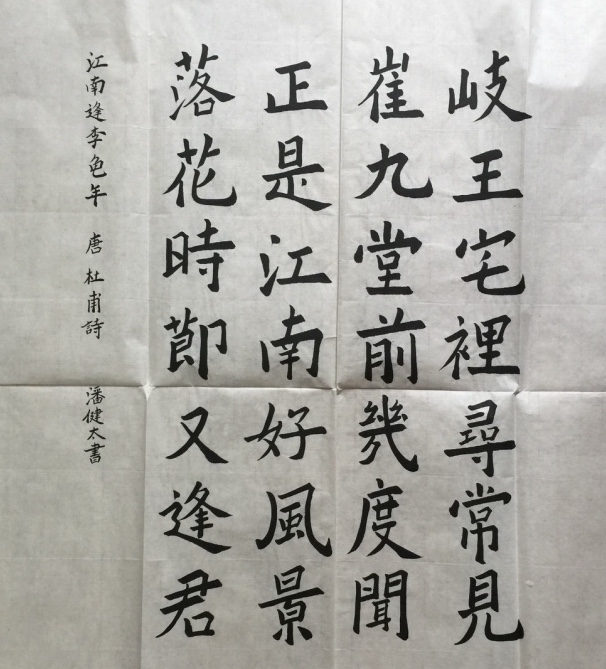 岐王宅裡尋常見
崔九堂前幾度聞
正是江南好風景
落花時節又逢君
江南逢李龟年 唐 杜甫詩 潘健太書